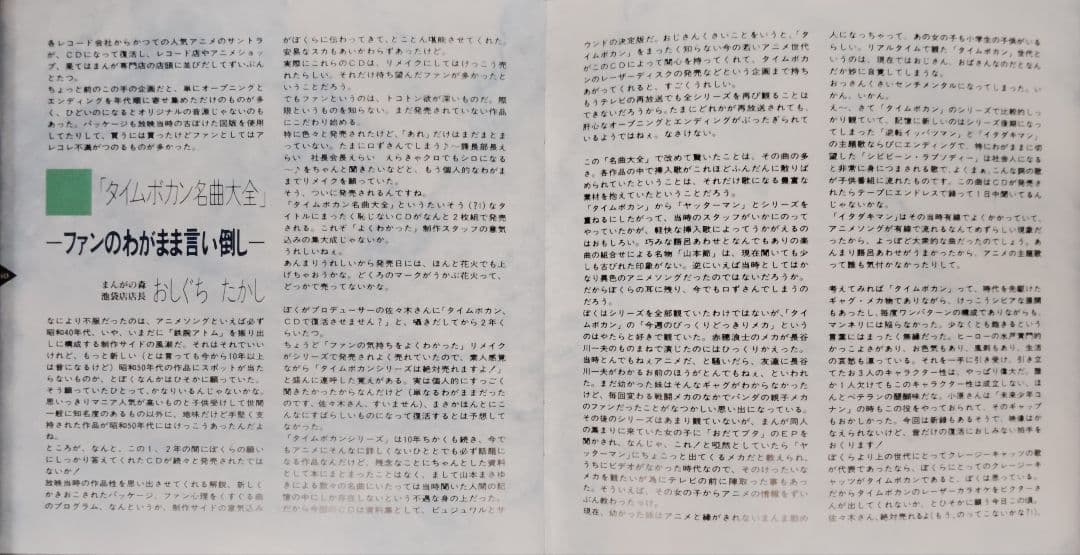 各レコード会社からかつての人気アニメのサントラ
が、ＣＤになって復活し、レコード店やアニメショッ
プ、果てはまんが専門店の店頭に並びだしてずいぶん
とたつ。
ちょっと前のこの手の企画だと、単にオープニングと
エンディングを年代順に寄せ集めただけのものが多
く、ひどいのになるとオリジナルの音源じゃないのも
あった。パッケージも放映当時のぼけた図版を使用
してたりして、買うには買ったけどファンとしてはア
レコレ不満がつのるものが多かった。
「タイムボカン名曲大全」
―ファンのわがまま言い倒し―
まんがの森
池袋店店長 おしぐち たかし
なにより不服だったのは、アニメソングといえば必ず
昭和40年代、いや、いまだに「鉄腕アトム」を振り出
しに構成する制作サイドの風潮だ。それはそれでいい
けれど、もっと新しい（とは言っても今から10年以上
は昔になるけど）昭和50年代の作品にスポットが当た
らないものか、とぼくなんかはひそかに願っていた。
そう願っていたひとって、かなりいるんじゃないかな。
思いっきりマニア人気が高いものと子供受けして世間
一般に知名度のあるもの以外に、地味だけど手堅く支
持された作品が昭和50年代にはけっこうあったんだよ
ね。
ところが、なんと、この１、２年の間にぼくらの願い
にしっかり答えてくれたＣＤが続々と発売されたでは
ないか！
放映当時の作品性を思い出させてくれる解説、新しく
かきおこされたパッケージ、ファン心理をくすぐる曲
のプログラム、なんというか、制作サイドの意気込み
がぼくらに伝わってきて、とことん堪能させてくれた。
安易なスカもあいかわらずあったけど。
実際にこれらのＣＤは、リメイクにしてはけっこう売
れたらしい。それだけ待ち望んだファンが多かったと
いうことだろう。
でもファンというのは、トコトン欲が深いものだ。際
限というものを知らない。まだ発売されていない作品
にこだわり始める。
特に色々と発売されたけど、「あれ」だけはまだまとま
っていない。たまに口ずさんでしまう♪～課長部長え
らい　社長会長えらい　えらきゃクロでもシロになる
～♪をちゃんと聞きたいなどと、もう個人的なわがま
まてリメイクを願っていた。
そう、ついに発売されるんですね。
「タイムボカン名曲大全」というたいそう（?!）なタ
イトルにまったく恥じないＣＤがなんと２枚組で発売
される。これぞ「よくわかった」制作スタッフの意気
込みの集大成じゃないか。
うれしいねぇ。
あんまりうれしいから発売日には、ほんと花火でも上
げちゃおうかな。どくろのマークがうかぶ花火って、
どっかで売ってないかな。
ぼくがプロデューサーの佐々木さんに「タイムボカン、
ＣＤで復活させません？」と、囁きだしてから２年く
らいたつ。
ちょうど「ファンの気持ちをよくわかった」リメイク
がシリーズで発売されよく売れていたので、素人感覚
ながら「タイムボカンシリーズは絶対売れますよ／」
と盛んに連呼した覚えがある。実は個人的にすっごく
聞きたかったからなんだけど（単なるわがままだった
のです、佐々木さん、すいません）、まさかほんとにこ
んなにすばらしいものになって復活するとは予想して
なかった。
「タイムボカンシリーズ」は10年ちかくも続き、今で
もアニメにそんなに詳しくないひとでも必ず話題に
なる作品なんだけど、残念なことにちゃんとした資料
として本にまとまったことはなく、まして山本まさゆ
きによる数々の名曲にいたっては当時聞いた人間の記
憶の中にしか存在しないという不遇な身の上だった。
だから今回のＣＤは資料集として、ビュジュワルとサ
ウンドの決定版だ。おじさんくさいことをいうと、「タ
イムボカン」をまったく知らない今の若いアニメ世代
がこのＣＤによって関心を持ってくれて、タイムボカ
ンのレーザーディスクの発売などという企画まで持ち
あがってくれると、すごくうれしい。
もうテレビの再放送でも全シリーズを再び観ることは
できないだろうから。たまにどれかが再放送されても、
肝心なオープニングとエンディングがぶったぎられて
いるようではねぇ。なさけない。
この「名曲大全」で改めて驚いたことは、その曲の多
さ。各作品の中で挿入歌がこれほどふんだんに散りば
められていたということは、それだけ歌になる豊富な
素材を抱えていたということだろう。
「タイムボカン」から「ヤッターマン」とシリーズを
重ねるにしたがって、当時のスタッフがいかにのって
やっていたかが、軽快な挿入歌によってうかがえるの
はおもしろい。巧みな語呂あわせとなんでもありの楽
曲の組合せによる名物「山本節」は、現在聞いても少
しも古びた印象がない。逆にいえば当時としてはか
なり異色のアニメソングだったのではないだろうか。
だからぼくらの耳に残り、今でも口ずさんでしまうの
だろう。
ぼくはシリーズを全部観ていたわけではないが、「タイ
ムボカン」の「今週のびっくりどっきりメカ」という
のはやたらと好きで観ていた。赤穂浪士のメカが長
谷川一夫のものまねで演じたのにはひっくりかえった。
当時とんでもねェアニメだ、と騒いだら、友達に長谷
川一夫がわかるおまえのほうがとんでもねぇ、といわれ
た。まだ幼かった妹はそんなギャグがわからなかった
けど、毎回変わる戦闘メカのなかでパンダの親子メカ
のファンだったことがなつかしい思い出になっている。
その後のシリーズはあまり観ていないが、まんが同人
の集まりに来ていた女の子に「おだてブタ」のＥＰを
聞かされ、なんじゃ、これ／と唖然としていたら「ヤ
ッターマン」にちょこっと出てくるメカだと教えられ、
うちにビデオがなかった時代なので、そのけったいな
メカを観たいが為にテレビの前に陣取った事もあっ
た。そういえば、その女の子からアニメの情報をずい
ぶん教わったっけ。
現在、幼かった妹はアニメと縁がきれないまんま勤め
人になっちゃって、あの女の子も小学生の子供がいる
らしい。リアルタイムで観た「タイムボカン」世代と
いうのは、現在ではおじさん、おばさんなのだとなん
だか妙に自覚してしまうな。
おっさんくさいセンチメンタルになってしまった。い
かん、いかん。
え～、さて「タイムボカン」のシリーズで比較的しっ
かり観ていて、記憶に新しいのはシリーズ後期になっ
てしまった「逆転イッパツマン」と「イタダキマン」
の主題歌ならびにエンディングで、特にわがままに切
望した「シビビーン・ラプソディー」は社会人になる
と非常に身につまされる歌で、よくまぁ、こんな調の歌
が子供番組に流れたものです。この曲はＣＤが発売さ
れたらテープにエンドレスで録って１日中聞いてるん
じゃないかな。
「イタダキマン」はその当時有線でよくかかっていて、
アニメソングが有線で流れるなんてめずらしい現象だ
ったから、よっぽど大衆的な曲だったのでしょう。あ
んまり語呂あわせがうまかったから、アニメの主題歌
って誰も気付かなかったりして。
考えてみれば「タイムボカン」って、時代を先駆けた
ギャグ・メカ物でありながら、けっこうシビアな展開
もあったし、毎度ワンパターンの構成でありながらも、
マンネリには陥らなかった。少なくとも飽きるという
言葉にはまったく無縁だった。ヒーローの水戸黄門的
かっこよさがあり、お色気もあり、風刺もあり、生活
の哀愁も漂っている。それを一手に引き受け、引き立
てたお３人のキャラクター性は、やっぱり偉大だ。誰
か１人欠けてもこのキャラクター性は成立しない、ほ
んとベテランの醍醐味だな。小原さんは「未来少年コ
ナン」の時もこの役をやっておられて、そのギャップ
もおかしかった。今回は新録もあるそうで、映像はか
なえられないけど、音だけの復活におしみない拍手を
おくります！
ぼくらより上の世代にとってクレージーキャッツの歌
が代表であったなら、ぼくらにとってのクレージーキ
ャッツがタイムボカンであると、ぼくは思っている。
だからタイムボカンのレーザーカラオケをビクターさ
んが出してくれないか、とひそかに願う今日この頃。
佐々木さん、絶対売れるよ（もう、のってこないかな?!）。